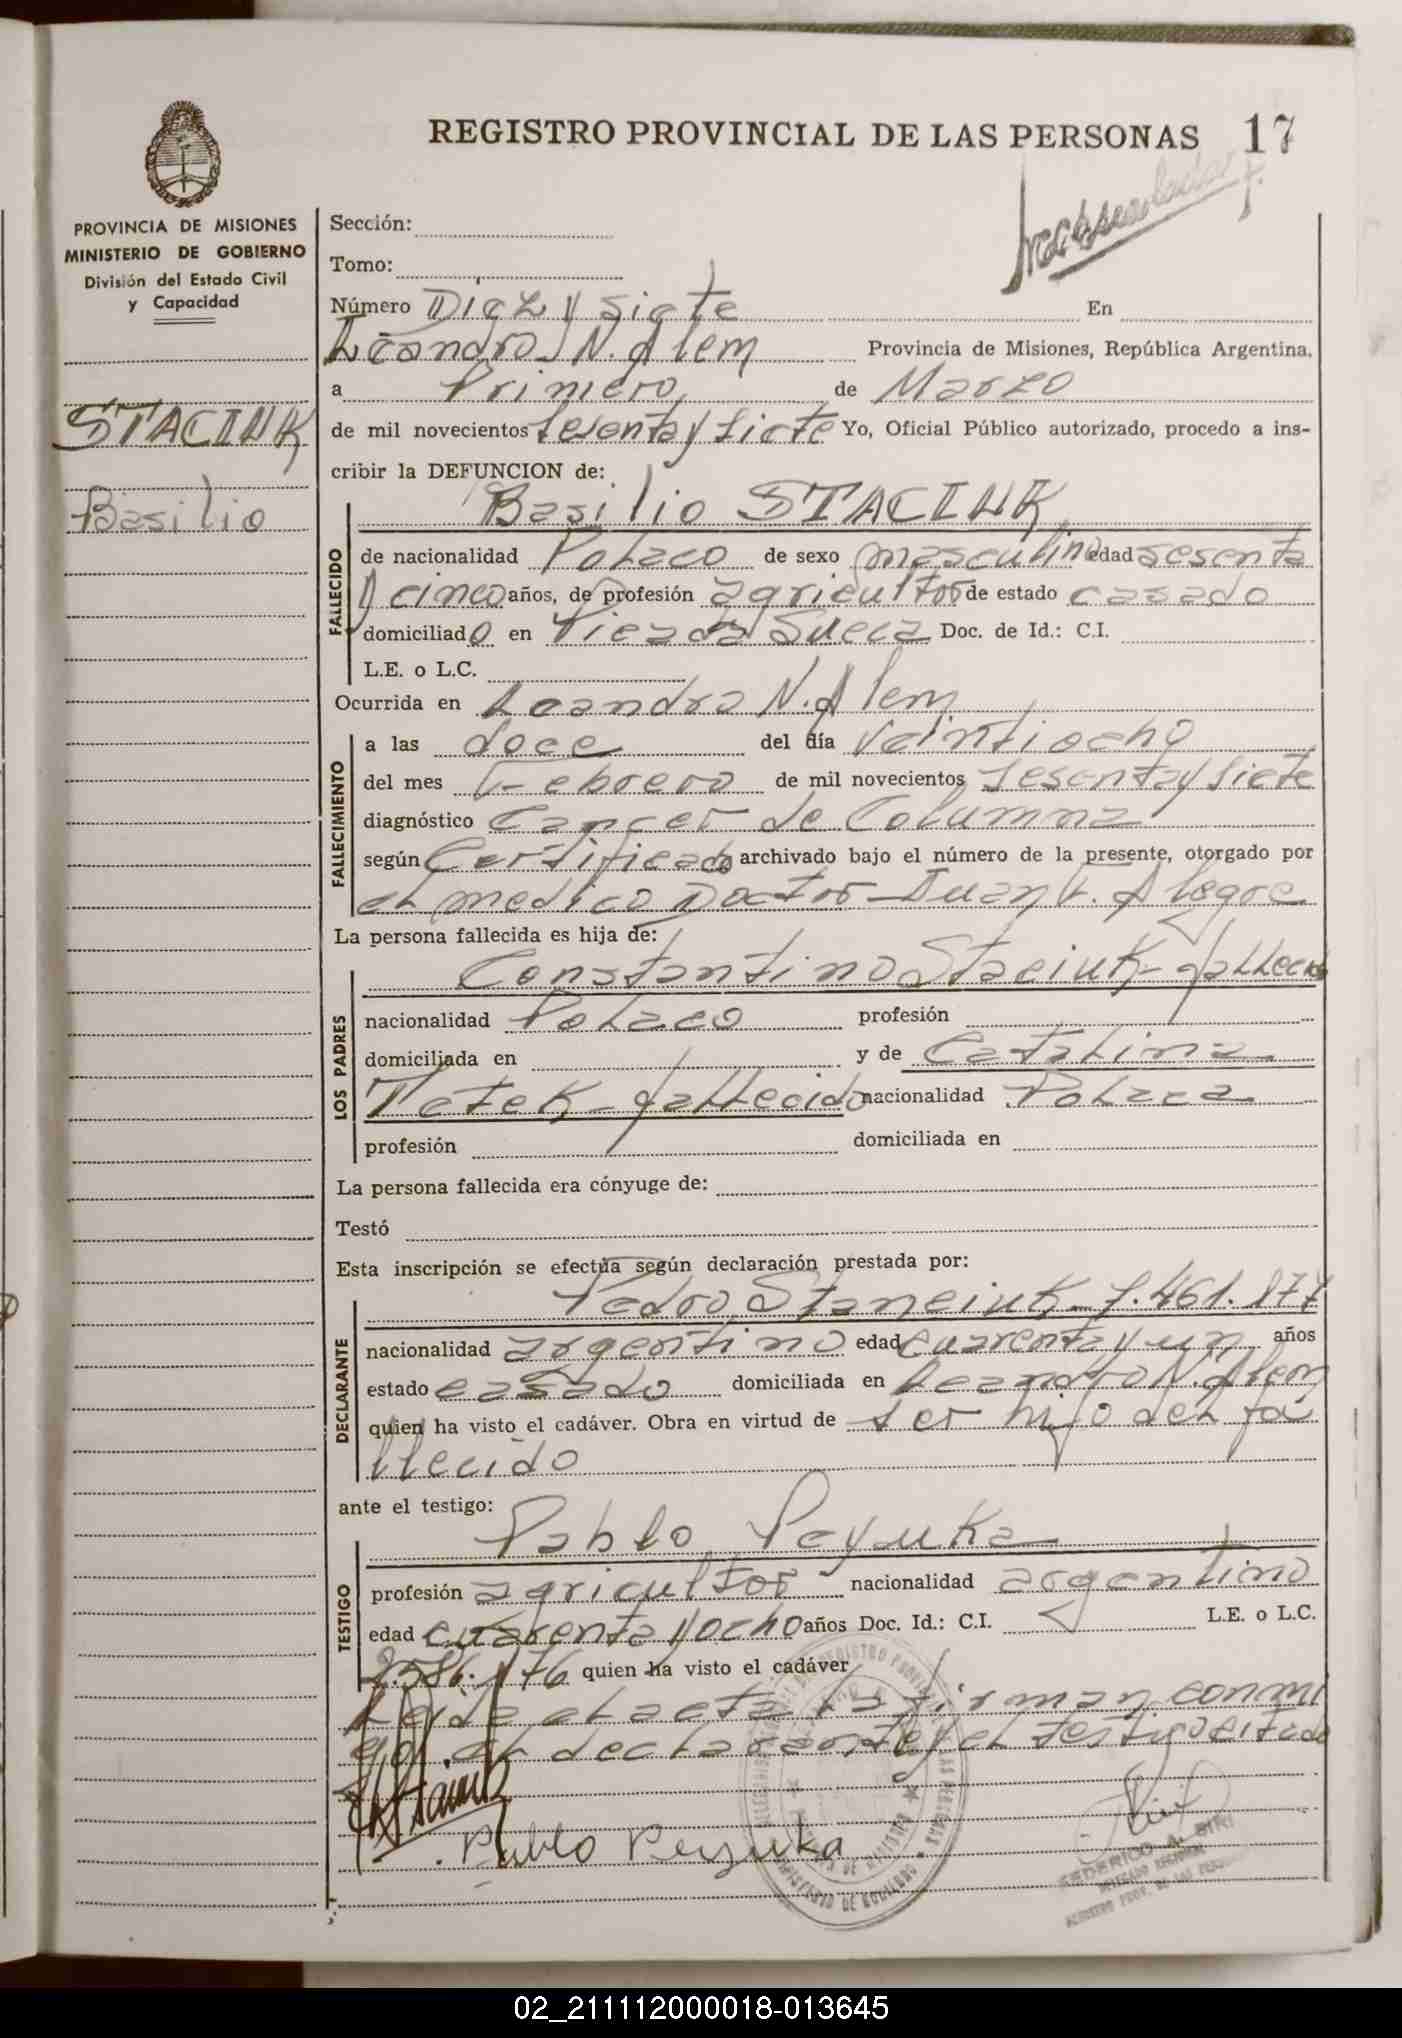 REGISTRO PROVINCIAL DE LAS PERSONAS 17
PROVINCIA DE MISIONES
MINISTERIO DE GOBIERNO
División del Estado Civil
y Capacidad
STACIUK
Basilio
Sección:
Tomo:
Número Diez y siete En
Leandro N. Alem Provincia de Misiones, República Argentina,
a Primero de Marzo
de mil novecientos sesenta y siete Yo, Oficial Público autorizado, procedo a ins-
cribir la DEFUNCION de:
Basilio STACIUK
FALLECIDO
de nacionalidad Polaco de sexo masculino edad sesenta
y cinco años, de profesión agricultor de estado casado
domiciliado en Picada Sueca Doc. de Id.: C.I.
L.E. o L.C.
Ocurrida en Leandro N. Alem
FALLECIMIENTO
a las doce del día veintiocho
del mes Febrero de mil novecientos sesenta y siete
diagnóstico Cancer de Columna
según Certificado archivado bajo el número de la presente, otorgado por
el medico Doctor Juan V. Alegre
La persona fallecida es hija de:
LOS PADRES
Constantino Staciuk - fallecido
nacionalidad Polaco profesión
domiciliada en y de Catalina
Tetek - fallecido nacionalidad Polaca
profesión domiciliada en
La persona fallecida era cónyuge de:
Testó
Esta inscripción se efectúa según declaración prestada por:
DECLARANTE
Pedro Staneiuk - 7.461.877
nacionalidad argentino edad cuarenta y un años
estado casado domiciliada en Leandro N. Alem
quien ha visto el cadáver. Obra en virtud de ser hijo del fa
llecido
ante el testigo:
TESTIGO
Pablo Peyuka
profesión agricultor nacionalidad argentino
edad cuarenta y ocho años Doc. Id.: C.I. L.E. o L.C.
quien ha visto el cadáver
Leida el acta la firman conmi
go el declarante y el testigo citado
Pablo Peyuka
FEDERICO A.
02_211112000018-013645